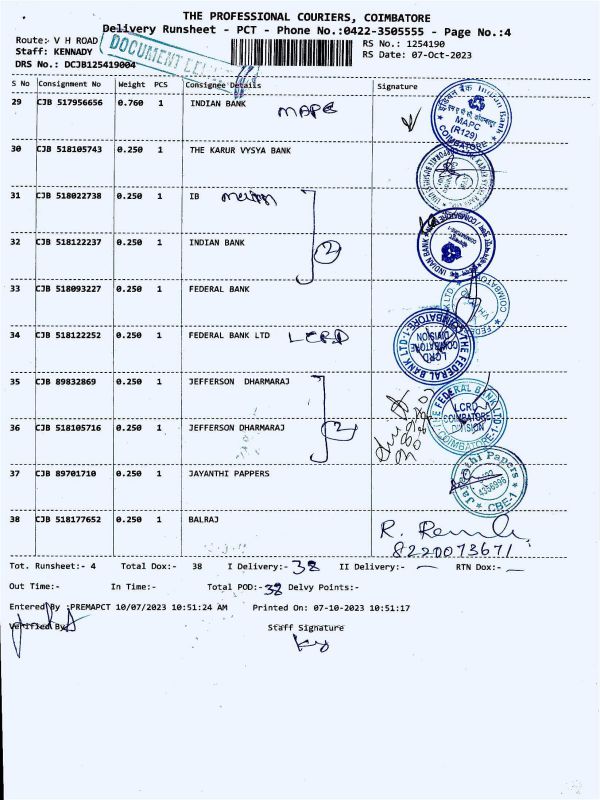 THE PROFESSIONAL COURIERS, COIMBATORE
Delivery Runsheet - PCT - Phone No.:0422-3505555 - Page No.:4
Route:- V H ROAD
RS No.: 1254190
Staff: KENNADY
RS Date: 07-Oct-2023
DRS No.: DCJB125419004
DOCUMENT
S No Consignment No Weight PCS Consignee Details Signature
29 CJB 517956656 0.760 1 INDIAN BANK MAPC
Indian Bank
MAPC
(R129)
COIMBATORE
30 CJB 518105743 0.250 1 THE KARUR VYSYA BANK
31 CJB 518022738 0.250 1 IB
32 CJB 518122237 0.250 1 INDIAN BANK 2
33 CJB 518093227 0.250 1 FEDERAL BANK
34 CJB 518122252 0.250 1 FEDERAL BANK LTD LCRD
THE FEDERAL BANK LTD
LCRD
COIMBATORE
DIVISION
35 CJB 89832869 0.250 1 JEFFERSON DHARMARAJ
THE FEDERAL BANK LTD
LCRD
COIMBATORE
DIVISION
COIMBATORE-1
36 CJB 518105716 0.250 1 JEFFERSON DHARMARAJ 2
37 CJB 89701710 0.250 1 JAYANTHI PAPPERS
Jayanthi Papers
4356996
CBE-1
38 CJB 518177652 0.250 1 BALRAJ
8220073671
Tot. Runsheet:- 4 Total Dox:- 38 I Delivery:- 38 II Delivery:- — RTN Dox:- —
Out Time:- In Time:- Total POD:- 38 Delvy Points:-
Entered By :PREMAPCT 10/07/2023 10:51:24 AM Printed On: 07-10-2023 10:51:17
Verified By
Staff Signature